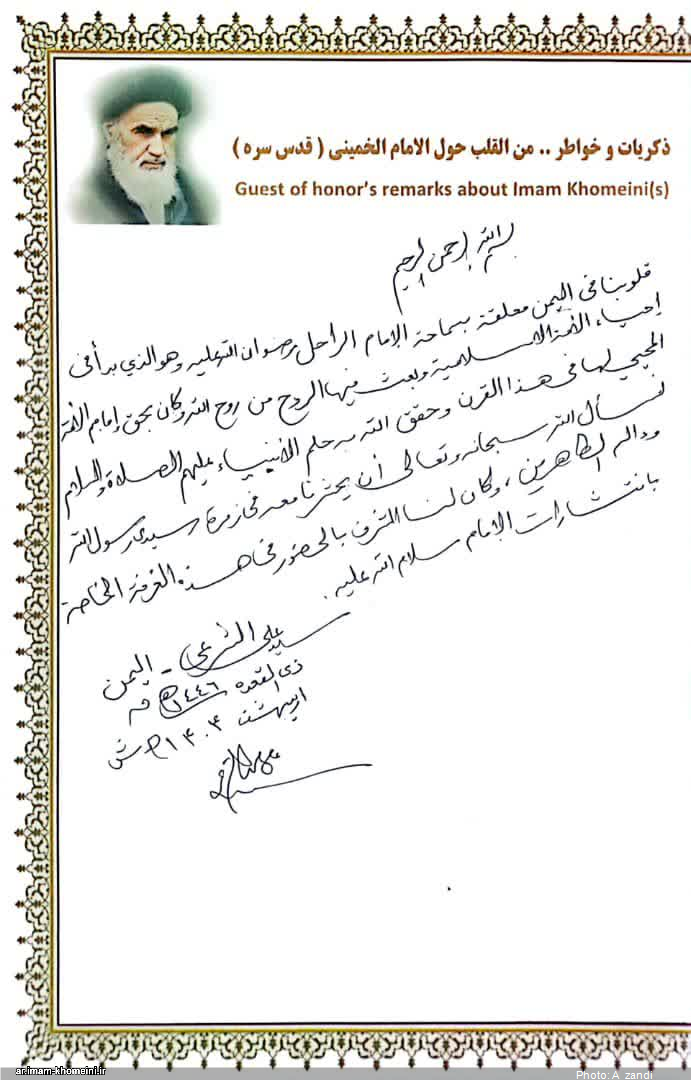 ذكريات و خواطر .. من القلب حول الامام الخمينى ( قدس سره )
Guest of honor's remarks about Imam Khomeini(s)
بسم الله الرحمن الرحيم
قلوبنا في اليمن معلقة بسماحة الإمام الراحل رضوان الله عليه وهو الذي بدأ في
إحياء الأمة الإسلامية وبعث فيها الروح من روح الله وكان بحق إمام الأمة
المحيي لها في هذا القرن وحقق الله به حلم الأنبياء عليهم الصلاة والسلام
نسأل الله سبحانه وتعالى أن يحشرنا معه في زمرة سيدي رسول الله
وداله الطاهرين ، وكان لنا الشرف بالحضور في هذه الغرفة الخاصة
بانتشارات الإمام سلام الله عليه .
سيد علي الشرعي - اليمن
ذي القعدة ١٤٤٦ هـ ق
اردیبهشت ١۴٠۴ هـ ش
ar.imam-khomeini.ir
Photo: A. zandi